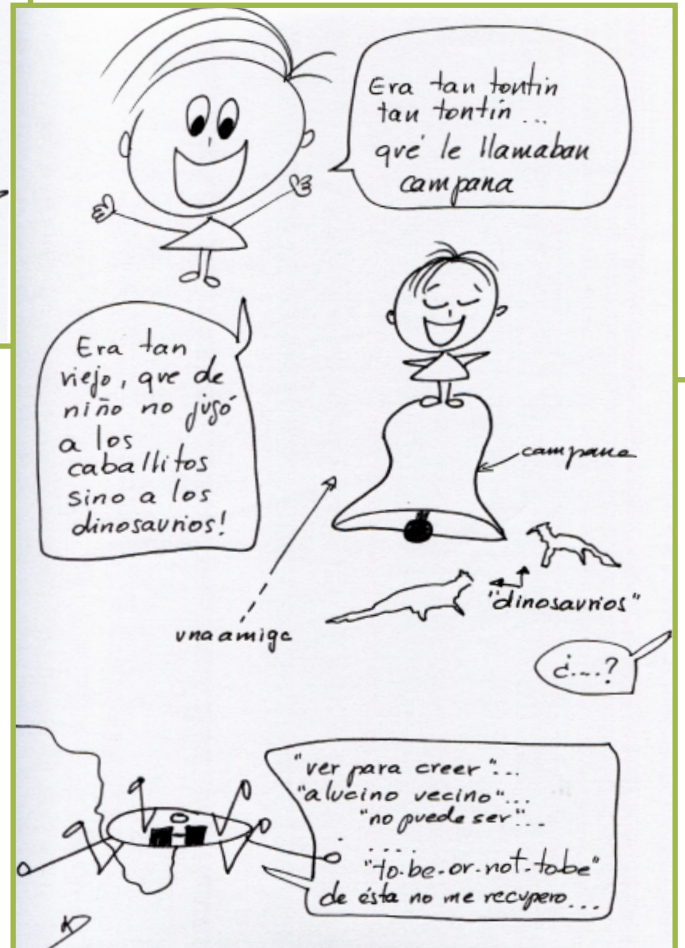 Era tan tontin
tan tontín...
qué le llamaban
campana
Era tan
viejo, que de
niño no jugó
a los
caballitos
sino a los
dinosaurios!
campana
"dinosaurios"
una amiga
¿....?
"ver para creer"...
"alucino vecino"...
"no puede ser"...
.....
"to.be-or-not-tobe"
de ésta no me recupero...